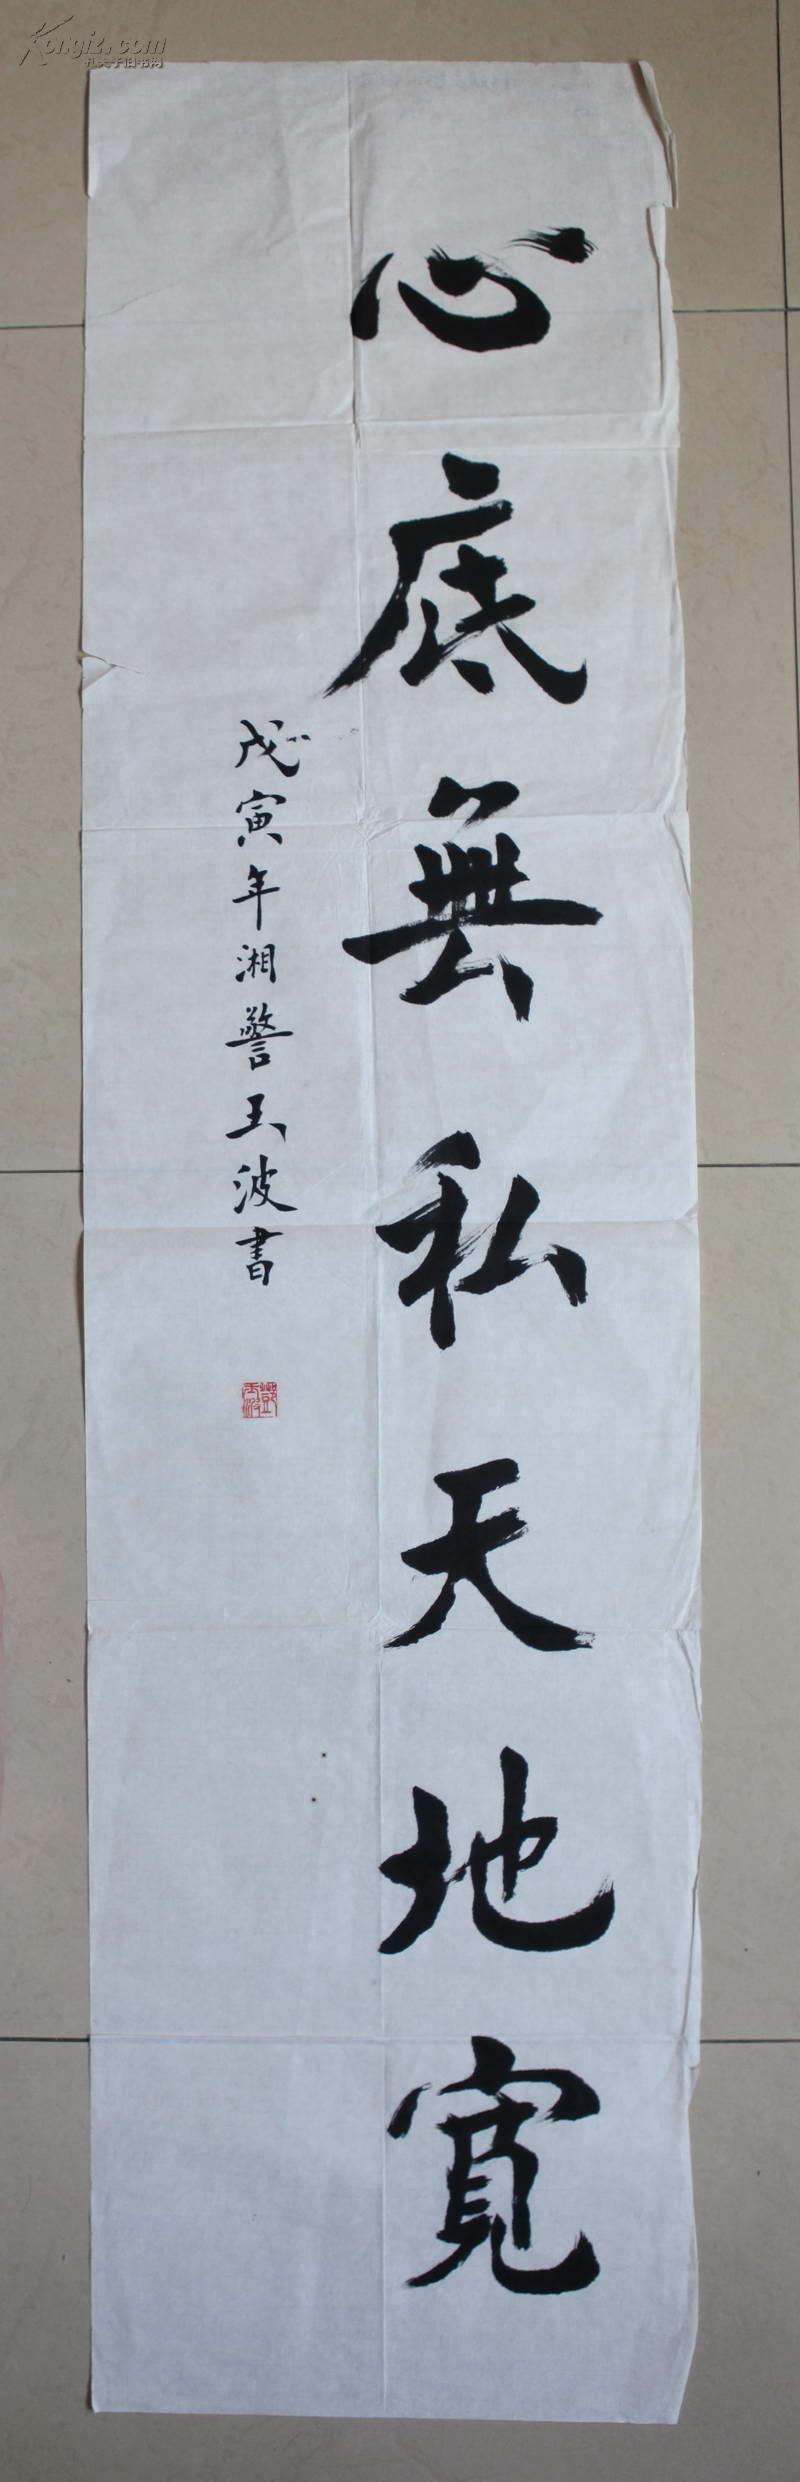 Kongfz.com
孔夫子旧书网
心底無私天地寬
戊寅年湘警玉波書
鄧玉波